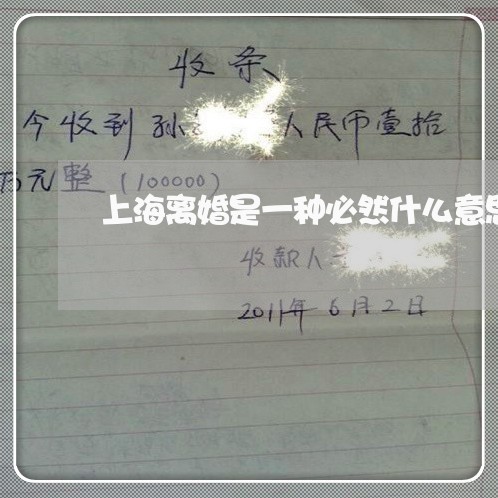 收条
今收到孙 人民币壹拾
万元整(100000)
上海离婚是一种必然什么意思
收款人
2011年6月2日